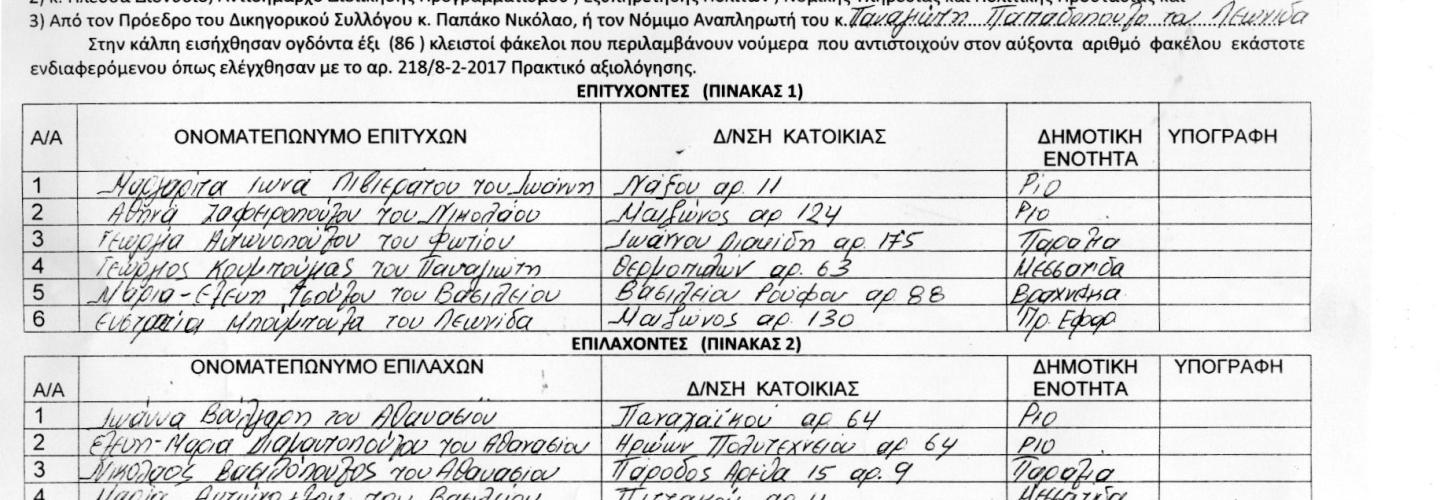 3) Από τον Πρόεδρο του Δικηγορικού Συλλόγου κ. Παπάκο Νικόλαο, ή τον Νόμιμο Αναπληρωτή του κ. Παναγιώτη Παπαδόπουλο του Λεωνίδα
Στην κάλπη εισήχθησαν ογδόντα έξι (86 ) κλειστοί φάκελοι που περιλαμβάνουν νούμερα που αντιστοιχούν στον αύξοντα αριθμό φακέλου εκάστοτε
ενδιαφερόμενου όπως ελέγχθησαν με το αρ. 218/8-2-2017 Πρακτικό αξιολόγησης.
ΕΠΙΤΥΧΟΝΤΕΣ (ΠΙΝΑΚΑΣ 1)
Α/Α ΟΝΟΜΑΤΕΠΩΝΥΜΟ ΕΠΙΤΥΧΩΝ Δ/ΝΣΗ ΚΑΤΟΙΚΙΑΣ ΔΗΜΟΤΙΚΗ ΕΝΟΤΗΤΑ ΥΠΟΓΡΑΦΗ
1 Μαργαρίτα Ιωνά Λιβιεράτου του Ιωάννη Νάξου αρ. 11 Ρίο
2 Αθηνά Ζαφειροπούλου του Νικολάου Μαιζώνος αρ 124 Ρίο
3 Γεωργία Αντωνοπούλου του Φωτίου Ιωάννου Διακίδη αρ. 175 Παραλία
4 Γεώργιος Κουμπούρας του Παναγιώτη Θερμοπυλών αρ. 63 Μεσσάτιδα
5 Μαρία-Ελένη Τσούλου του Βασιλείου Βασιλείου Ρούφου αρ 88 Βραχνέικα
6 Ευστρατία Μπούμπουλα του Λεωνίδα Μαιζώνος αρ. 130
ΕΠΙΛΑΧΟΝΤΕΣ (ΠΙΝΑΚΑΣ 2)
Α/Α ΟΝΟΜΑΤΕΠΩΝΥΜΟ ΕΠΙΛΑΧΩΝ Δ/ΝΣΗ ΚΑΤΟΙΚΙΑΣ ΔΗΜΟΤΙΚΗ ΕΝΟΤΗΤΑ ΥΠΟΓΡΑΦΗ
1 Ιωάννα Βούλγαρη του Αθανασίου Παναχαϊκού αρ 64 Ρίο
2 Ελένη-Μαρία Διαμαντοπούλου του Αθανασίου Ηρώων Πολυτεχνείου αρ 64 Ρίο
3 Νικόλαος Βασιλόπουλος του Αθανασίου Πάροδος Αρέθα 15 αρ. 9 Παραλία